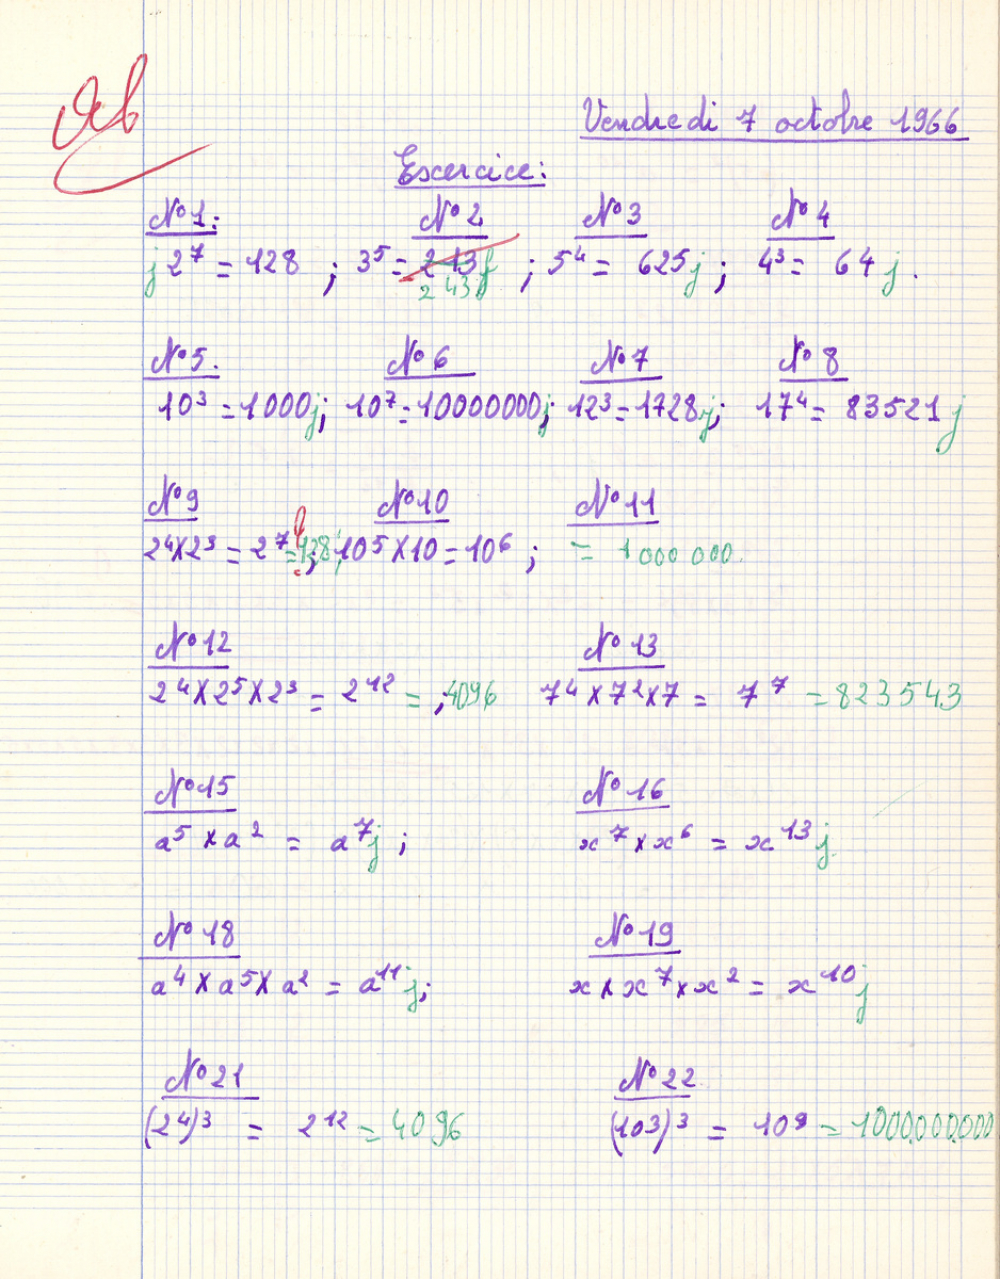 Vb
Vendredi 7 octobre 1966
Excercice:
N°1: N°2 N°3 N°4
j 2⁷ = 128 ; 3⁵ = 213 f ; 5⁴ = 625 j ; 4³ = 64 j .
243
N°5. N°6 N°7 N°8
10³ = 1000 j ; 10⁷ = 10000000 j ; 12³ = 1728 j ; 17⁴ = 83521 j
N°9 N°10 N°11
2⁴ x 2³ = 2⁷ = 128 ; 10⁵ x 10 = 10⁶ ; = 1 000 000.
N°12 N°13
2⁴ x 2⁵ x 2³ = 2¹² = ; 4096 7⁴ x 7² x 7 = 7⁷ = 823543
N°15 N°16
a⁵ x a² = a⁷ j ; x⁷ x x⁶ = x¹³ j
N°18 N°19
a⁴ x a⁵ x a² = a¹¹ j ; x x x⁷ x x² = x¹⁰ j
N°21 N°22
(2⁴)³ = 2¹² = 4096 (10³)³ = 10⁹ = 1000.000.000